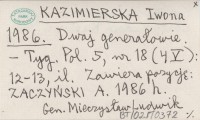 KAZIMIERSKA Iwona
1986. Dwaj generałowie.
- Tyg. Pol. 5, nr 18 (4 V):
12-13, il. Zawiera pozycję:
ZACZYŃSKI A. 1986 h.
Gen. Mieczysław Ludwik
BT/025/0372